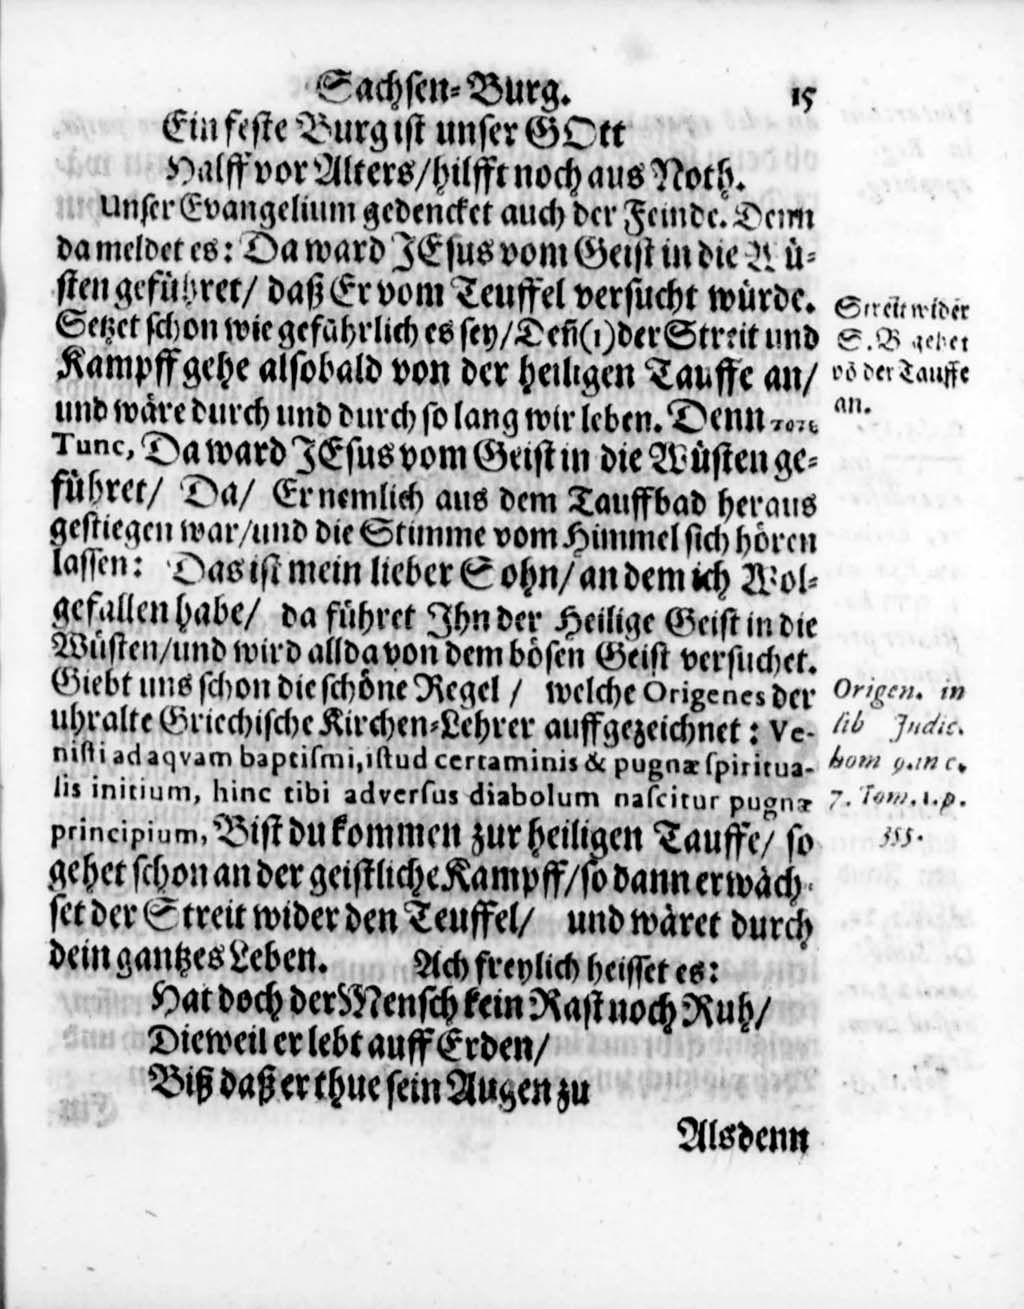 Sachsen-Burg. 15
Ein feste Burg ist unser GOtt
Halff vor Alters/hilfft noch aus Noth.
Unser Evangelium gedencket auch der Feinde. Denn
da meldet es: Da ward JEsus vom Geist in die Wü-
sten geführet/ daß Er vom Teuffel versucht würde.
Setzet schon wie gefährlich es sey/Deñ(1)der Streit und
Kampff gehe alsobald von der heiligen Tauffe an/
und wäre durch und durch so lang wir leben. Denn τοτε
Tunc, Da ward JEsus vom Geist in die Wüsten ge-
führet/ Da/ Er nemlich aus dem Tauffbad heraus
gestiegen war/und die Stimme vom Himmel sich hören
lassen: Das ist mein lieber Sohn/an dem ich Wol-
gefallen habe/ da führet Ihn der Heilige Geist in die
Wüsten/und wird allda von dem bösen Geist versuchet.
Giebt uns schon die schöne Regel / welche Origenes der
uhralte Griechische Kirchen-Lehrer auffgezeichnet: Ve-
nisti ad aqvam baptismi, istud certaminis & pugnæ spiritua-
lis initium, hinc tibi adversus diabolum nascitur pugnæ
principium, Bist du kommen zur heiligen Tauffe/ so
gehet schon an der geistliche Kampff/so dann erwäch-
set der Streit wider den Teuffel/ und wäret durch
dein gantzes Leben. Ach freylich heisset es:
Hat doch der Mensch kein Rast noch Ruh/
Dieweil er lebt auff Erden/
Biß daß er thue sein Augen zu
Alsdenn
Streit wider
S.V gehet
võ der Tauffe
an.
Origen. in
lib Judic.
hom 9. in c.
7. Tom. 1. p.
355.